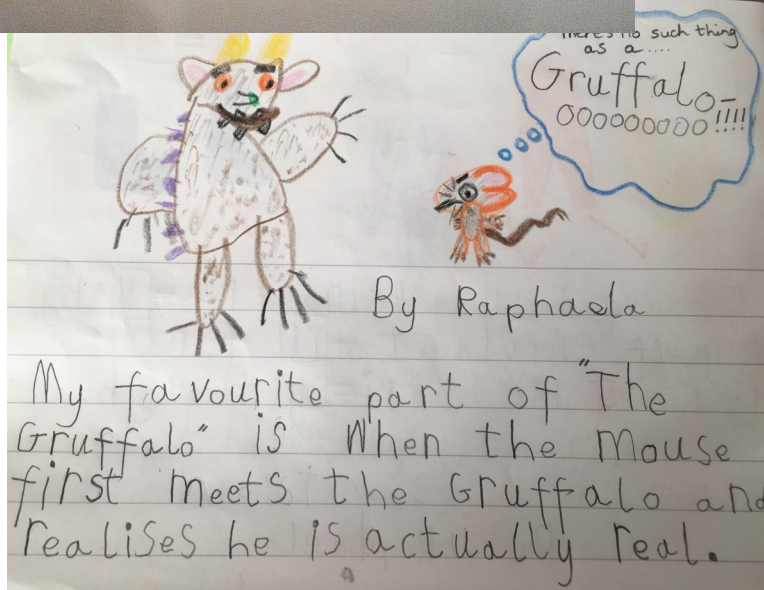 There's no such thing
as a....
Gruffalo–
OOOOOOOOO!!!!
By Raphaela
My favourite part of "The
Gruffalo" is When the Mouse
first meets the Gruffalo and
realises he is actually real.